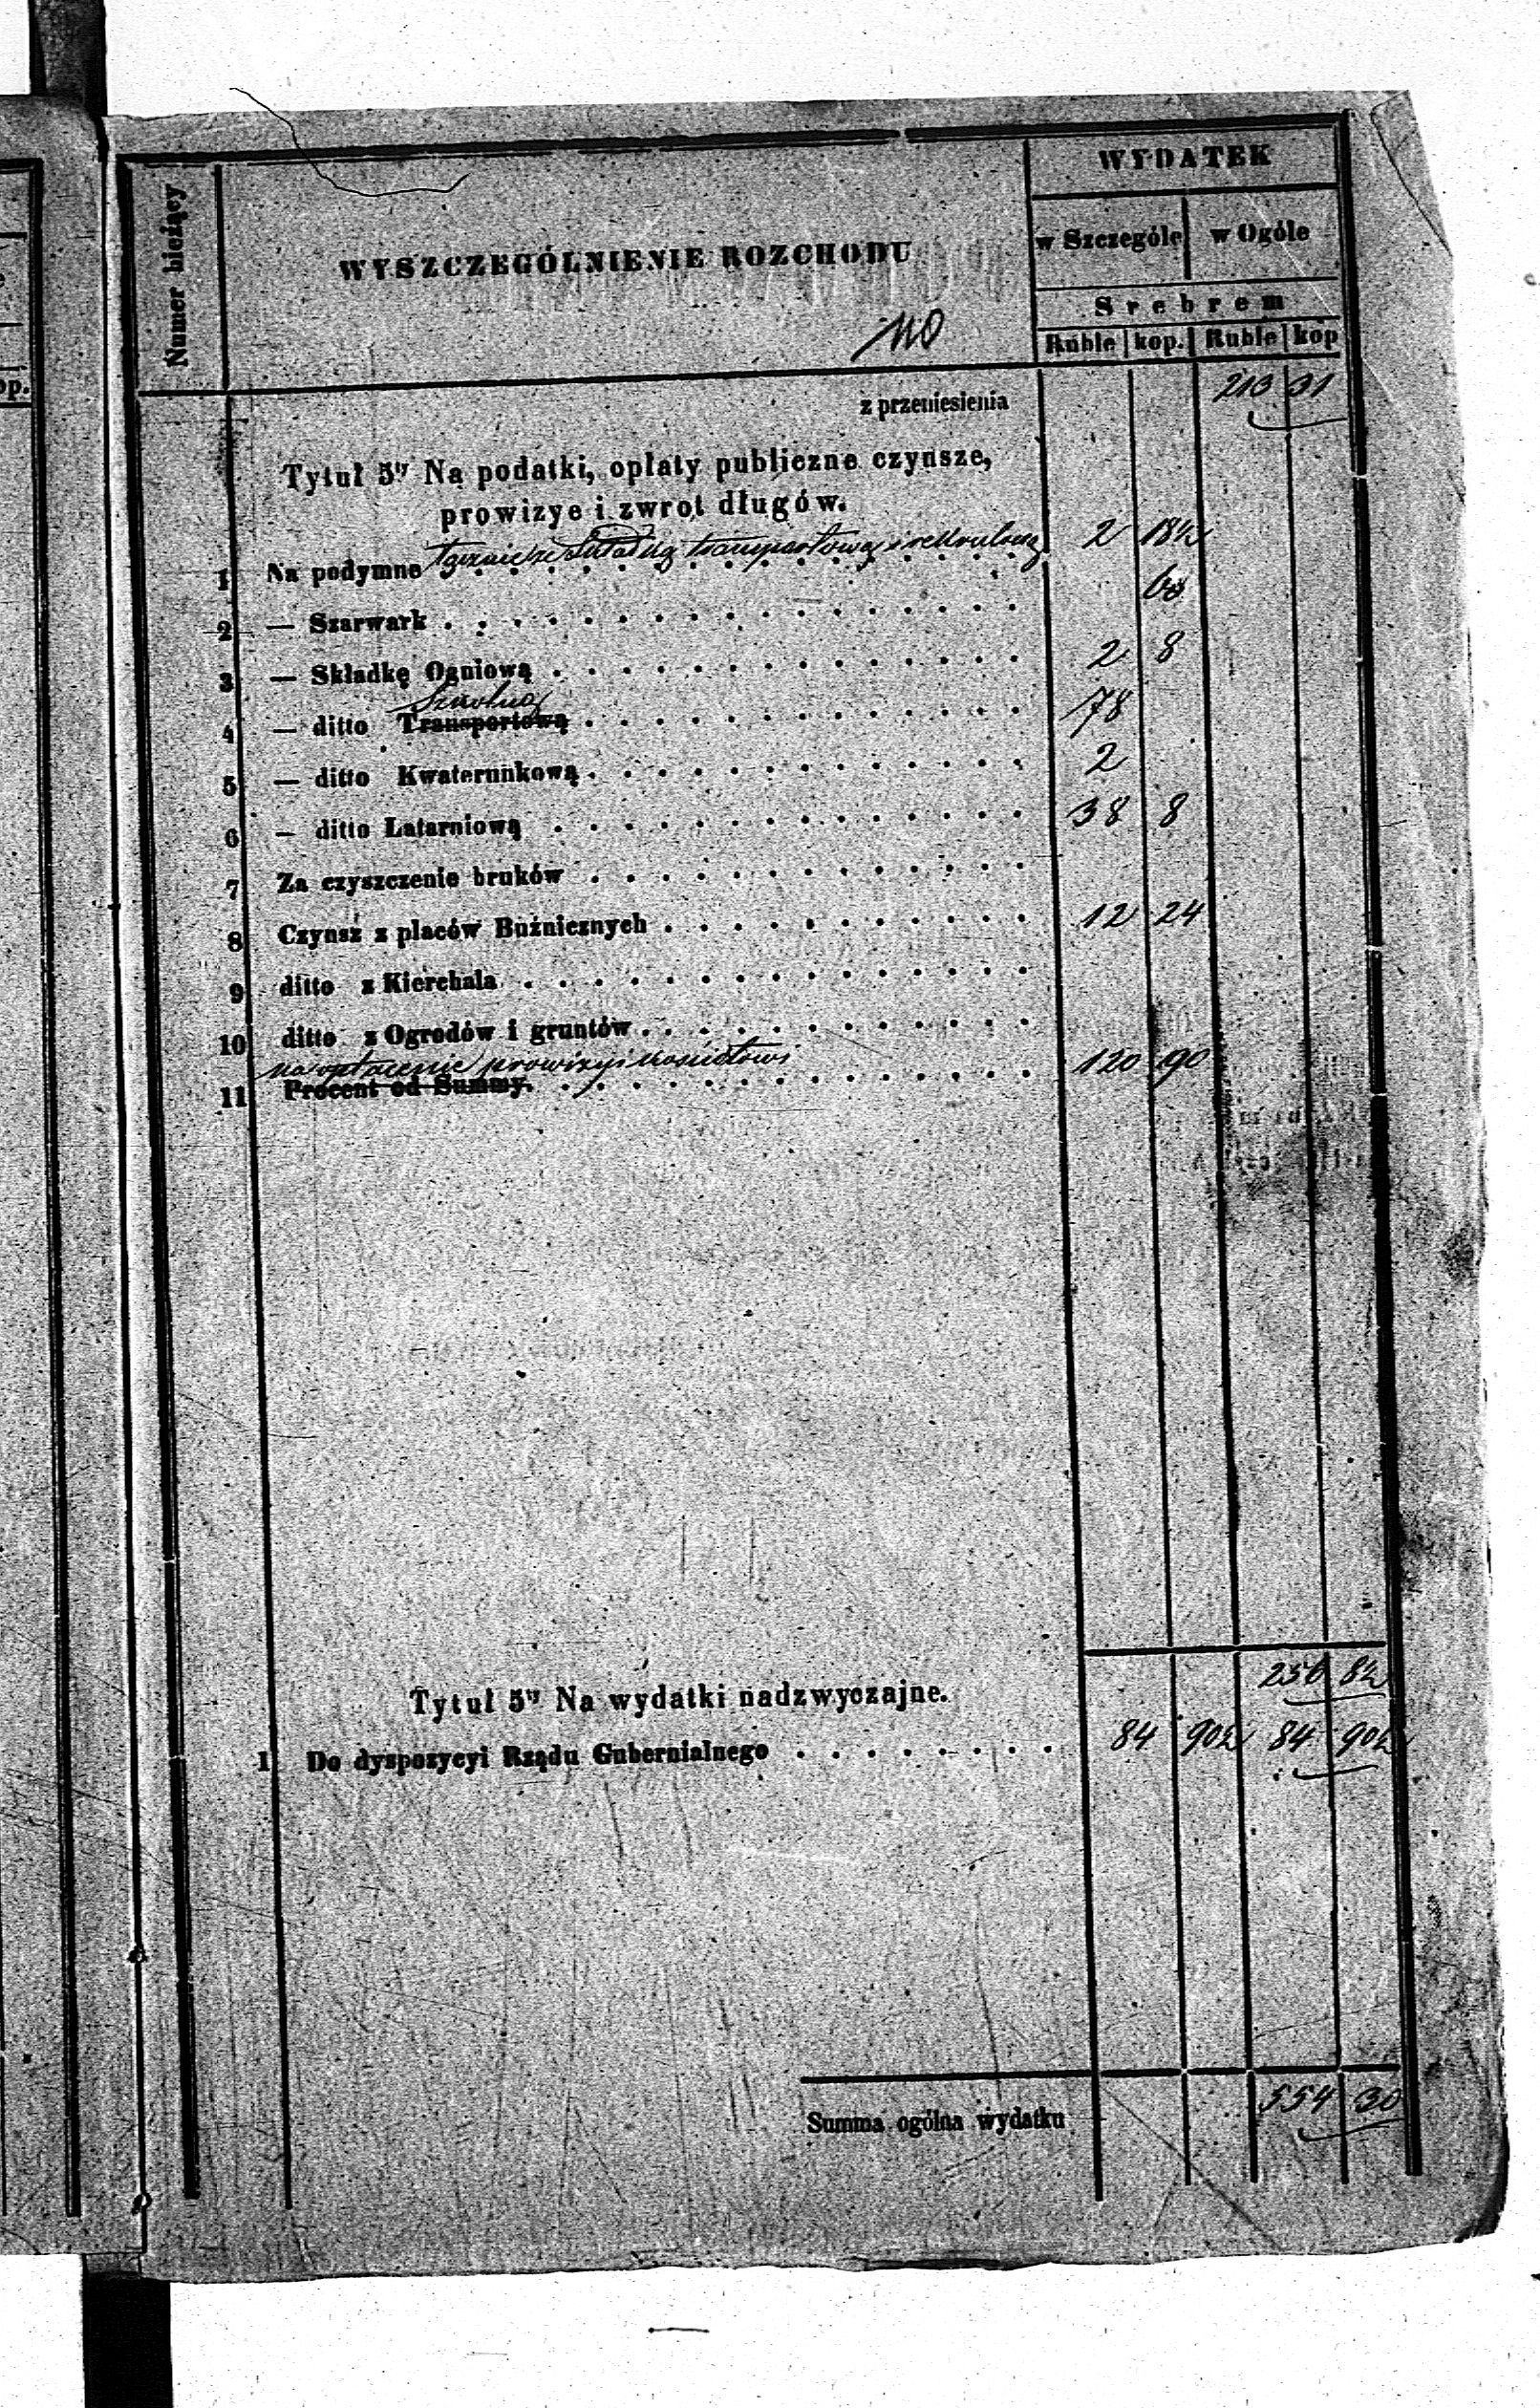 Numer bieżący
WYSZCZEGÓLNIENIE ROZCHODU
WYDATEK
w Szczególe w Ogóle
Srebrem
Ruble kop. Ruble kop
op.
110
z przeniesienia 213 31
Tytuł 5ty Na podatki, opłaty publiczne czynsze,
prowizye i zwrot długów.
łącznie ze składką transportową i rekrutową
1 Na podymne 2 18½
2 — Szarwark 60
3 — Składkę Ogniową 2 8
Szkolną
4 — ditto Transportową 78
5 — ditto Kwaterunkową 2
6 — ditto Latarniową 38 8
7 Za czyszczenie bruków
8 Czynsz z placów Bużnicznych 12 24
9 ditto z Kierchala
10 ditto z Ogrodów i gruntów
na opłacenie prowizyi kościołowi
11 Procent od Summy. 120 90
256 8½
Tytuł 5ty Na wydatki nadzwyczajne.
1 Do dyspozycyi Rządu Gubernialnego 84 90½ 84 90½
Summa ogólna wydatku 554 30